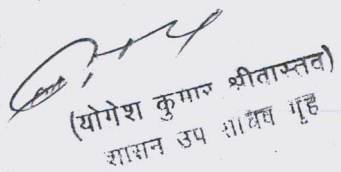 (योगेश कुमार श्रीवास्तव)
शासन उप सचिव गृह